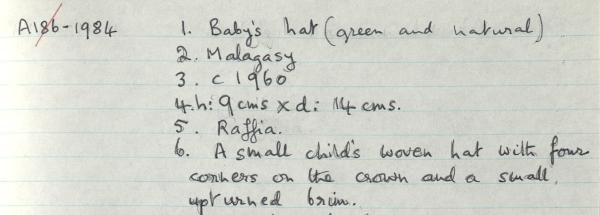 A186-1984 1. Baby's hat (green and natural)
2. Malagasy
3. c 1960
4. h: 9 cms x d: 14 cms.
5. Raffia.
6. A small child's woven hat with four
corners on the crown and a small,
upturned brim.